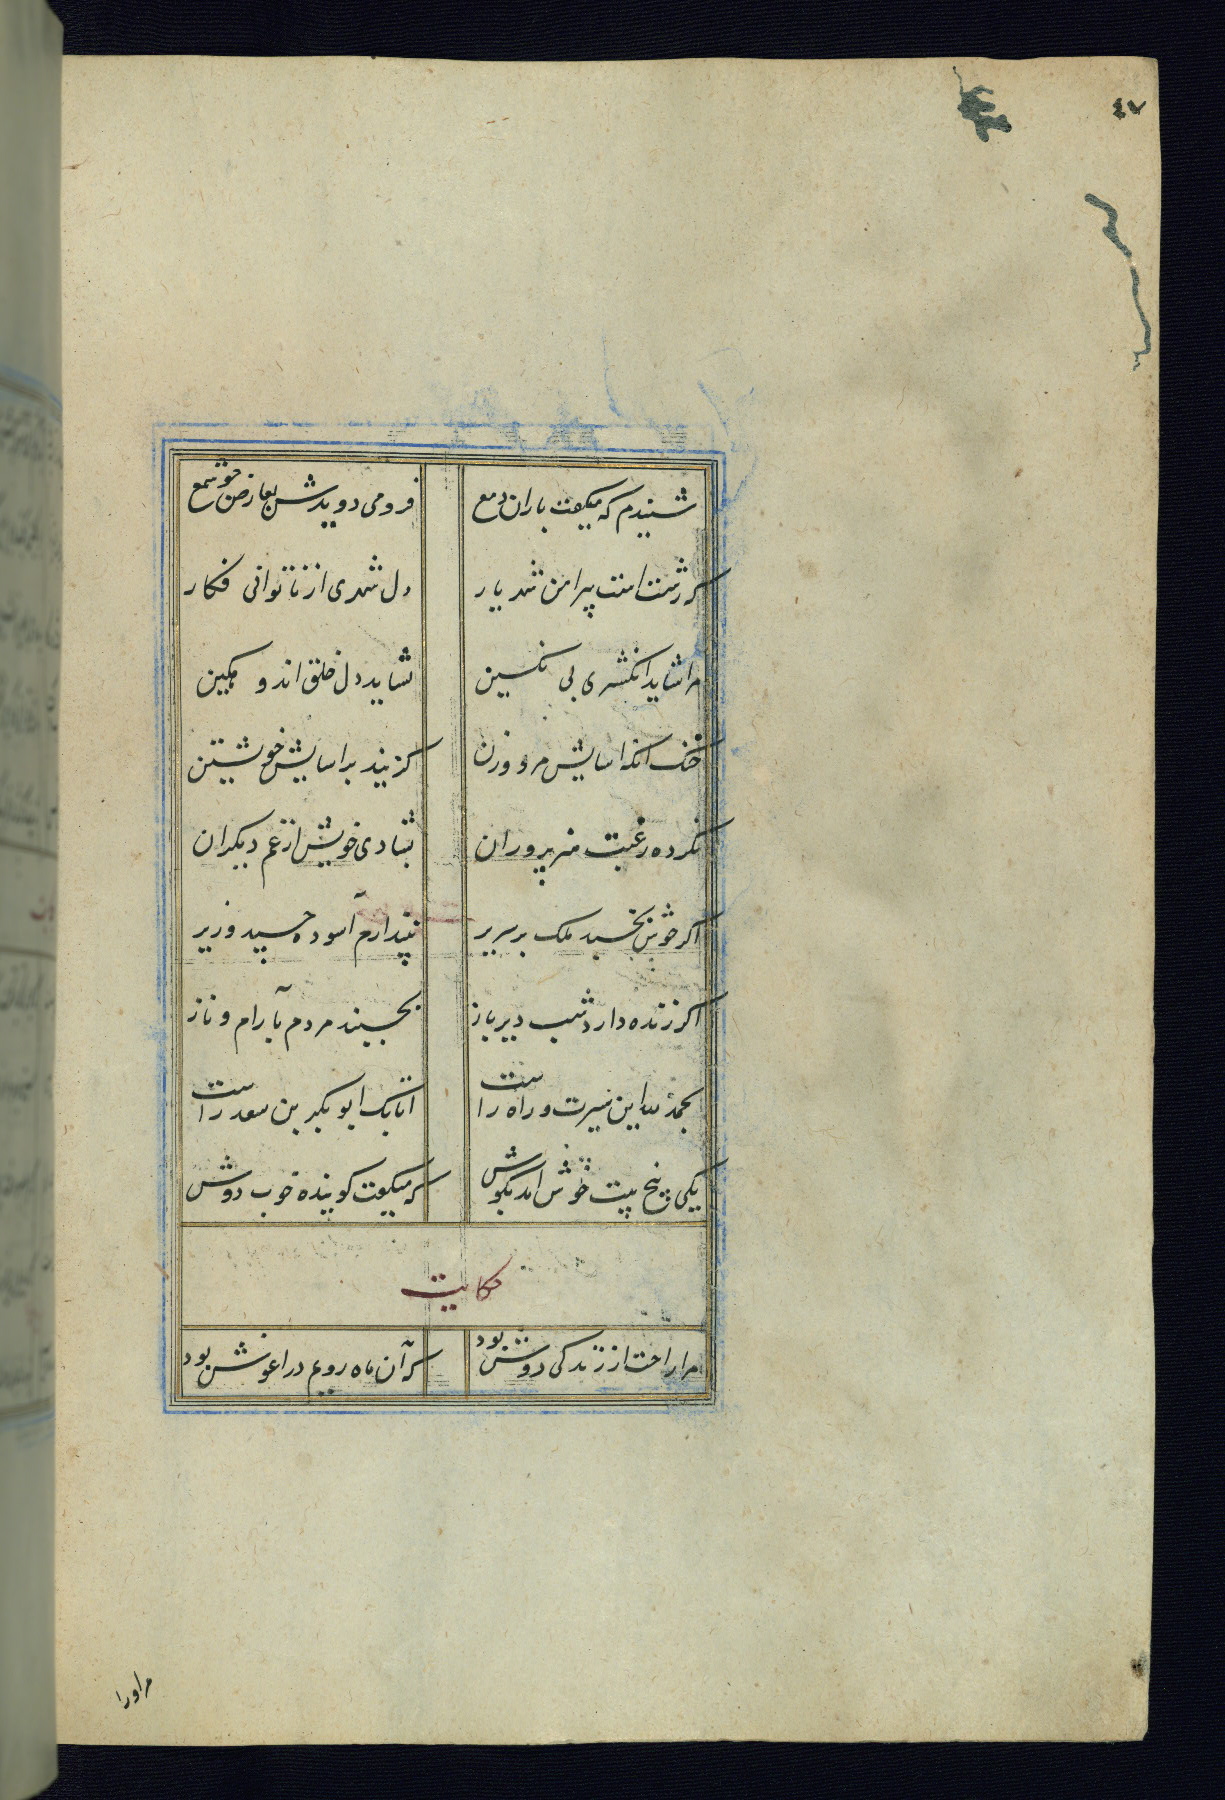 ٤٧
شنیدم که میگفت باران دمع
فرو می دویدش بعارض چو شمع
که زشت است پیرامن شهریار
دل شهری از ناتوانی فکار
مرا شاید انکشتری بی نکین
نشاید دل خلق اندوهکین
خنک انکه اسایش مرد و زن
کزیند بر اسایش خویشتن
نکرده رغبت هنرپروران
بشادی خویش از غم دیکران
اکر خوش بخسبد ملک بر سریر
نپندارم آسوده خسپد وزیر
اکر زنده دارد شب دیرباز
بخسپند مردم بآرام و ناز
بحمد لله این سیرت و راه راست
اتابک ابوبکر بن سعد راست
یکی پنج بیت خوش امد بکوش
که میکفت کوینده خوب دوش
حکایت
مرا راحت از زندکی دوش بود
که آن ماه رویم در اغوش بود
مر او را